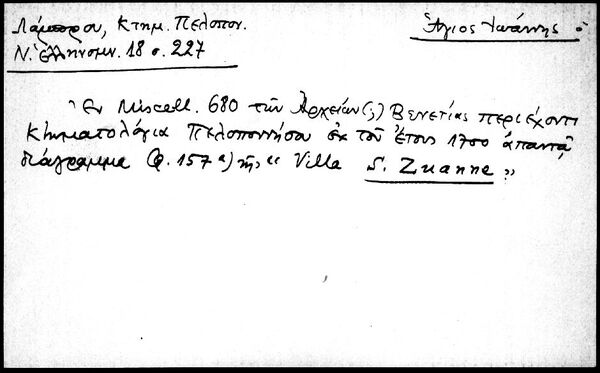 Λάμπρου, Κτημ. Πελοπον.
Ν. Ἑλληνομν. 18 σ. 227
Ἅγιος Ἰωάννης ὁ
Ἐν Miscell. 680 τῶν Ἀρχείων(;) Βενετίας περιέχοντι
Κτηματολόγια Πελοποννήσου ἐκ τοῦ ἔτους 1700 ἀπαντᾷ
διάγραμμα (φ. 157α) τῆς « Villa S. Zuanne »